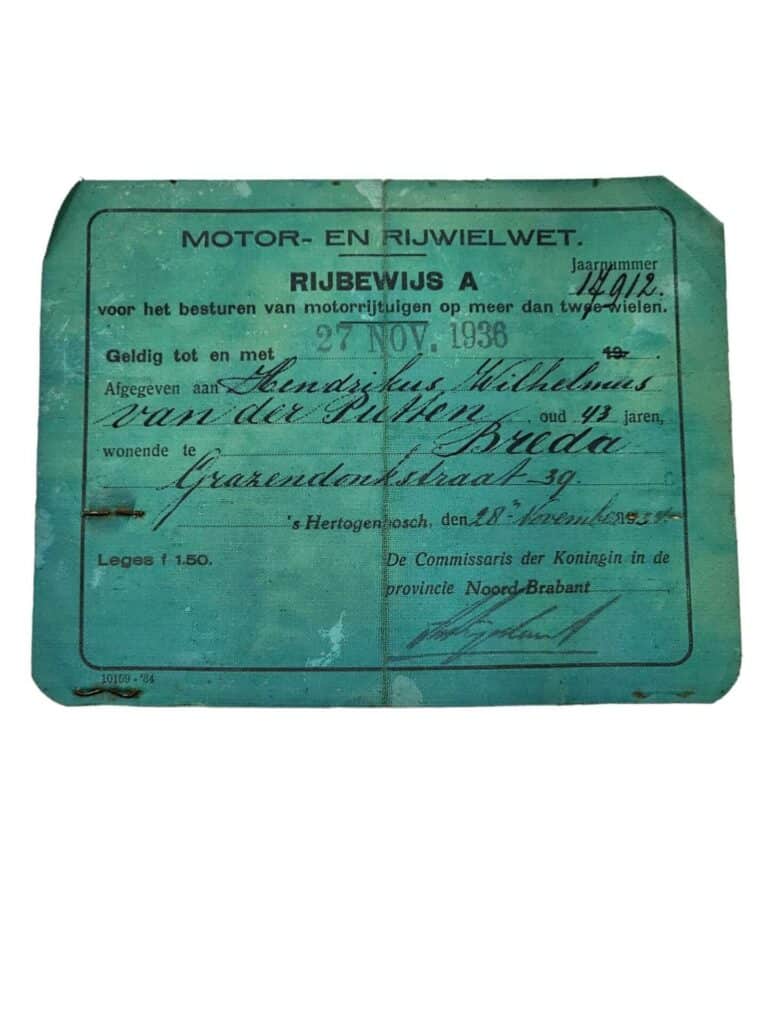 MOTOR- EN RIJWIELWET.
Jaarnummer
RIJBEWIJS A
14912.
voor het besturen van motorrijtuigen op meer dan twee wielen.
Geldig tot en met 27 NOV. 1936 19 .
Afgegeven aan Hendrikus Wilhelmus
van der Putten oud 43 jaren,
wonende te Breda
Grazendonkstraat 39.
's Hertogenbosch, den 28 November 1934.
Leges f 1.50.
De Commissaris der Koningin in de
provincie Noord-Brabant
10169 - '34